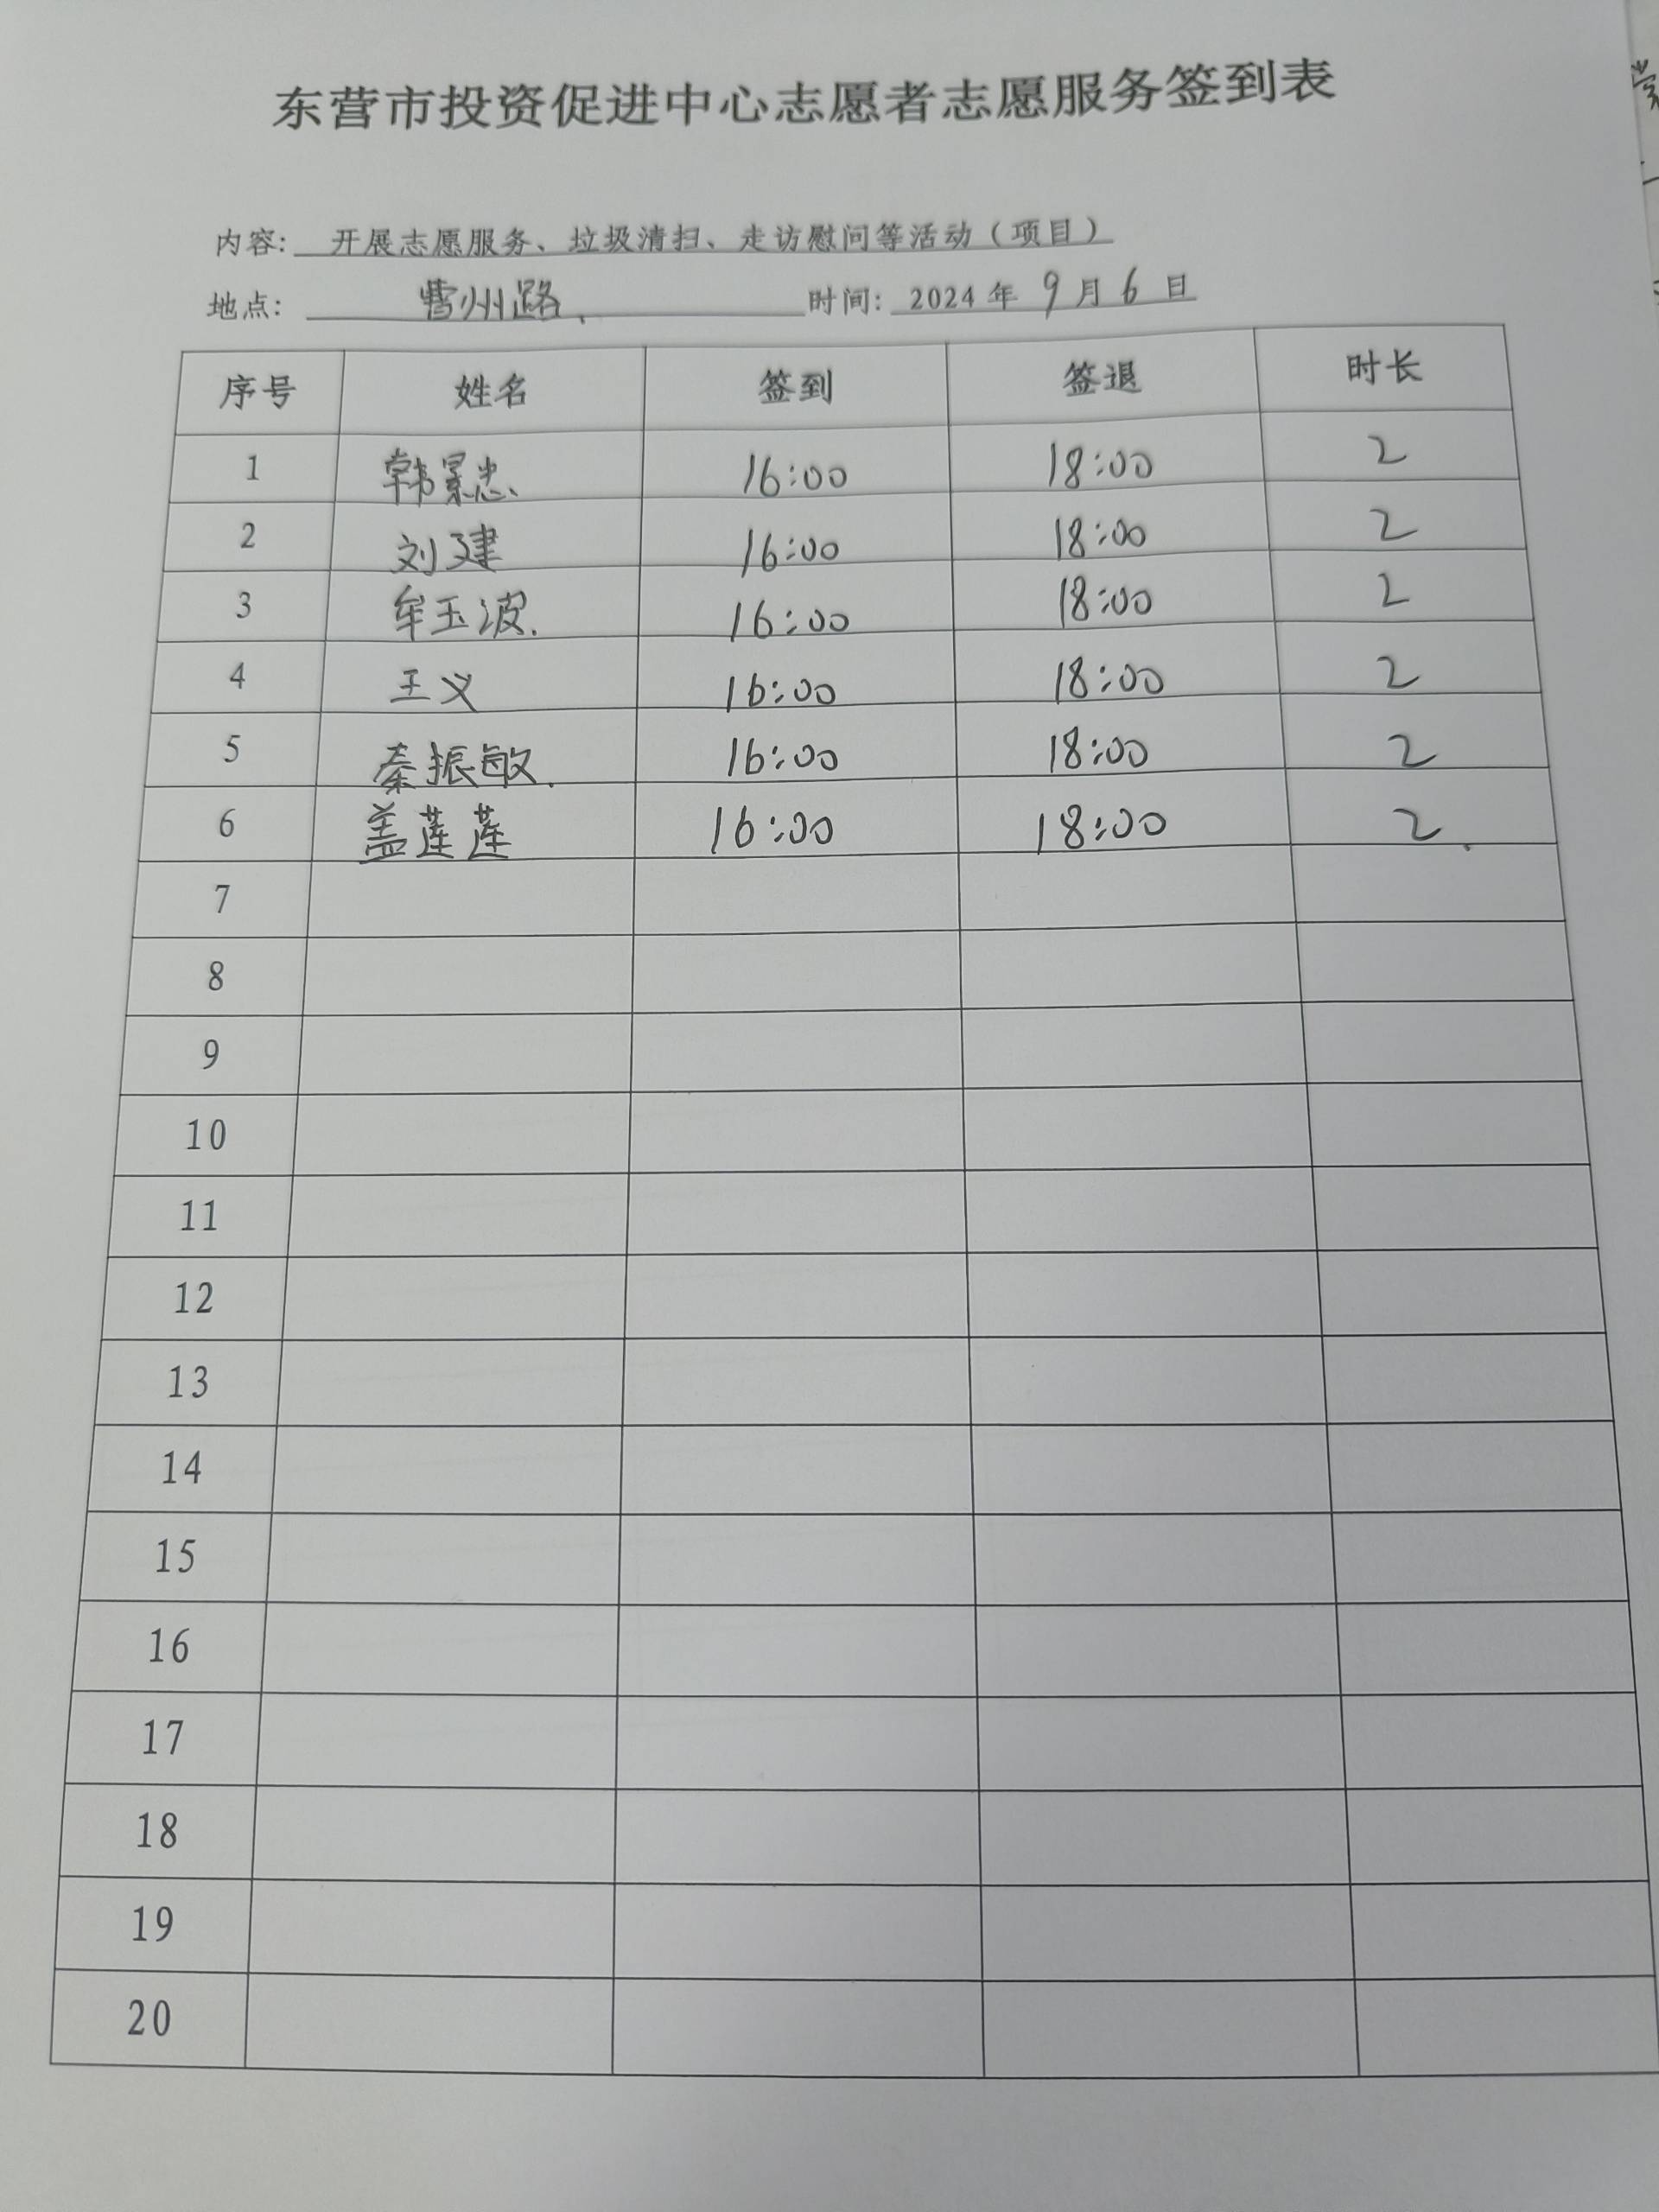 东营市投资促进中心志愿者志愿服务签到表
内容: 开展志愿服务、垃圾清扫、走访慰问等活动（项目）
地点: 曹州路 时间: 2024年9月6日
序号 姓名 签到 签退 时长
1 韩景忠 16:00 18:00 2
2 刘建 16:00 18:00 2
3 牟玉波 16:00 18:00 2
4 王义 16:00 18:00 2
5 秦振敏 16:00 18:00 2
6 盖莲莲 16:00 18:00 2
7
8
9
10
11
12
13
14
15
16
17
18
19
20